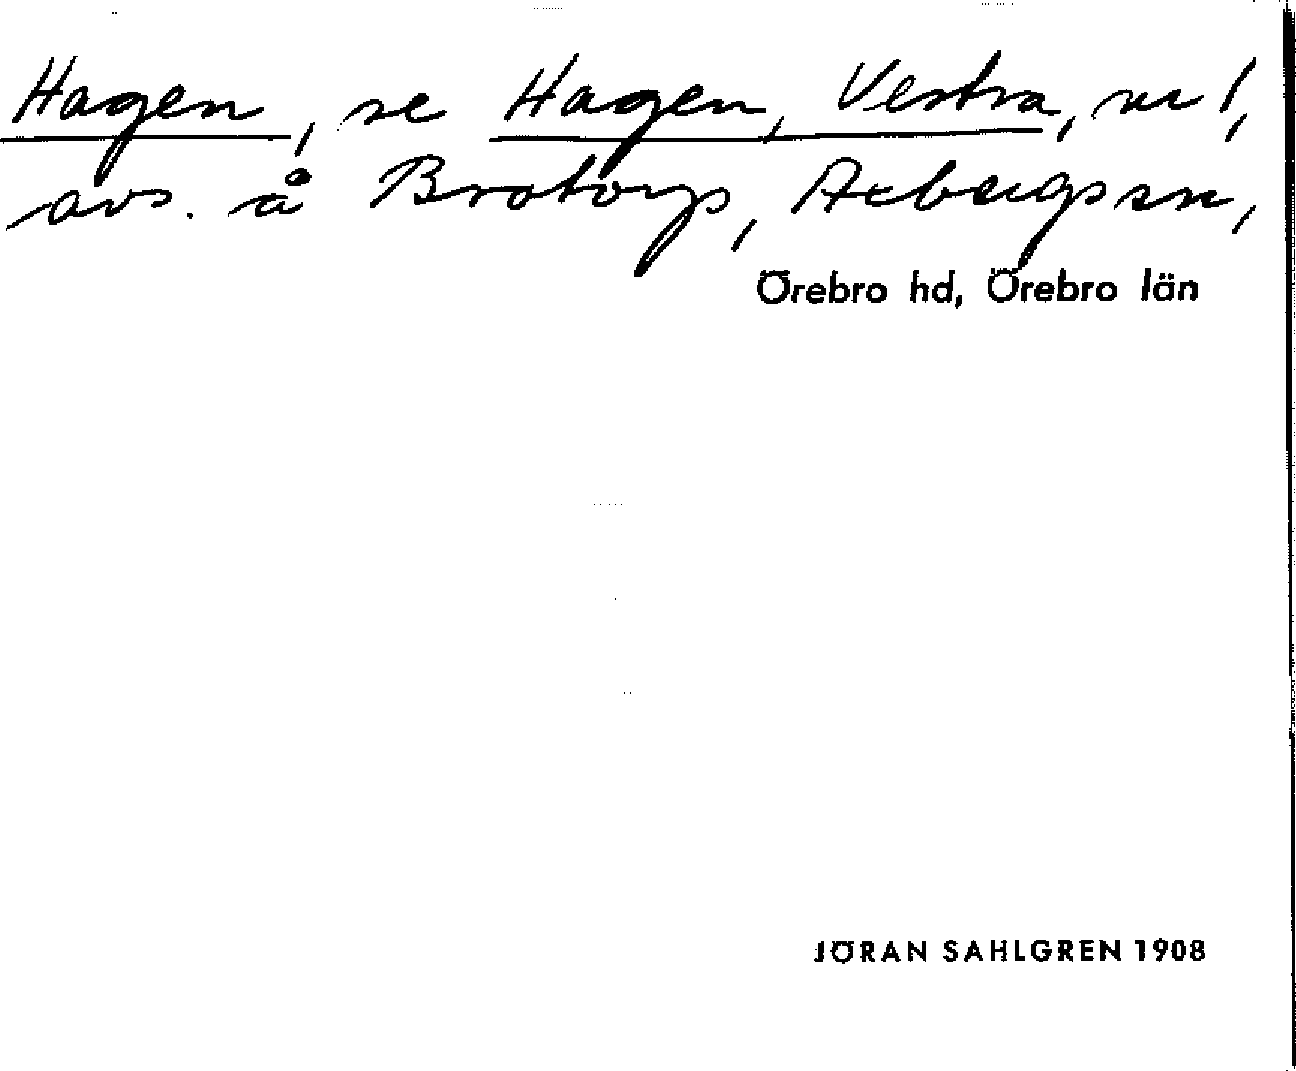 Hagen, se Hagen, Vestra, nr 1,
avs. å Brotorp, Axbergs sn,
Örebro hd, Örebro län
JÖRAN SAHLGREN 1908